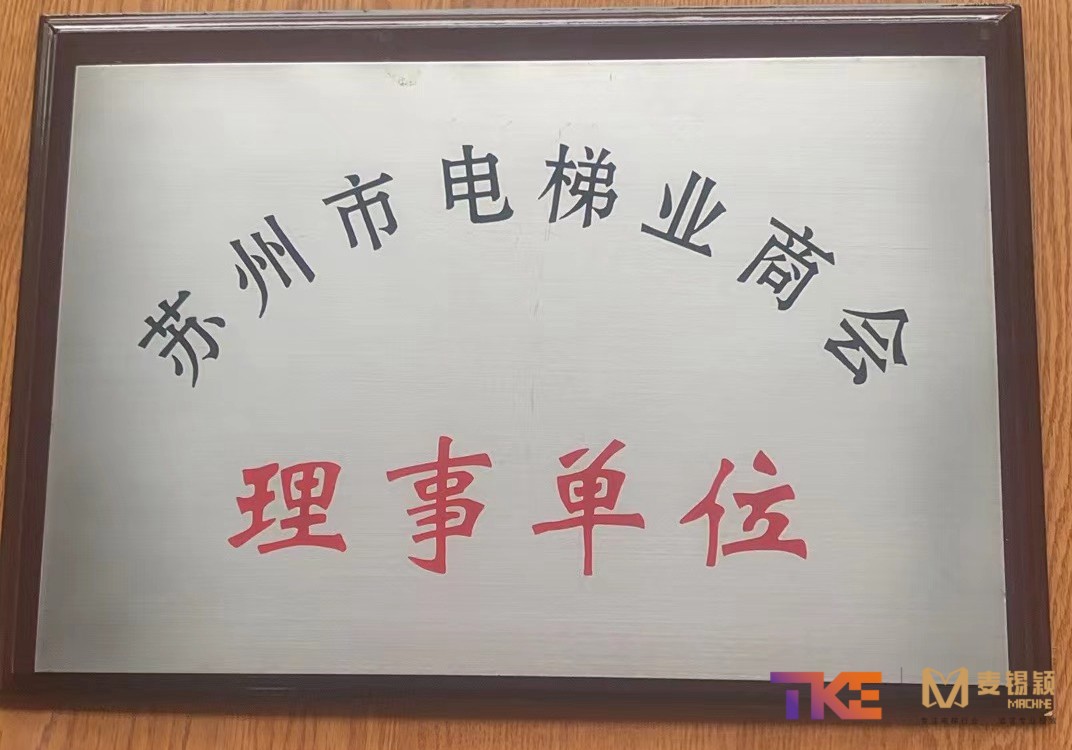 苏州市电梯业商会
理事单位
TKE
麦锡颖
MACHINE